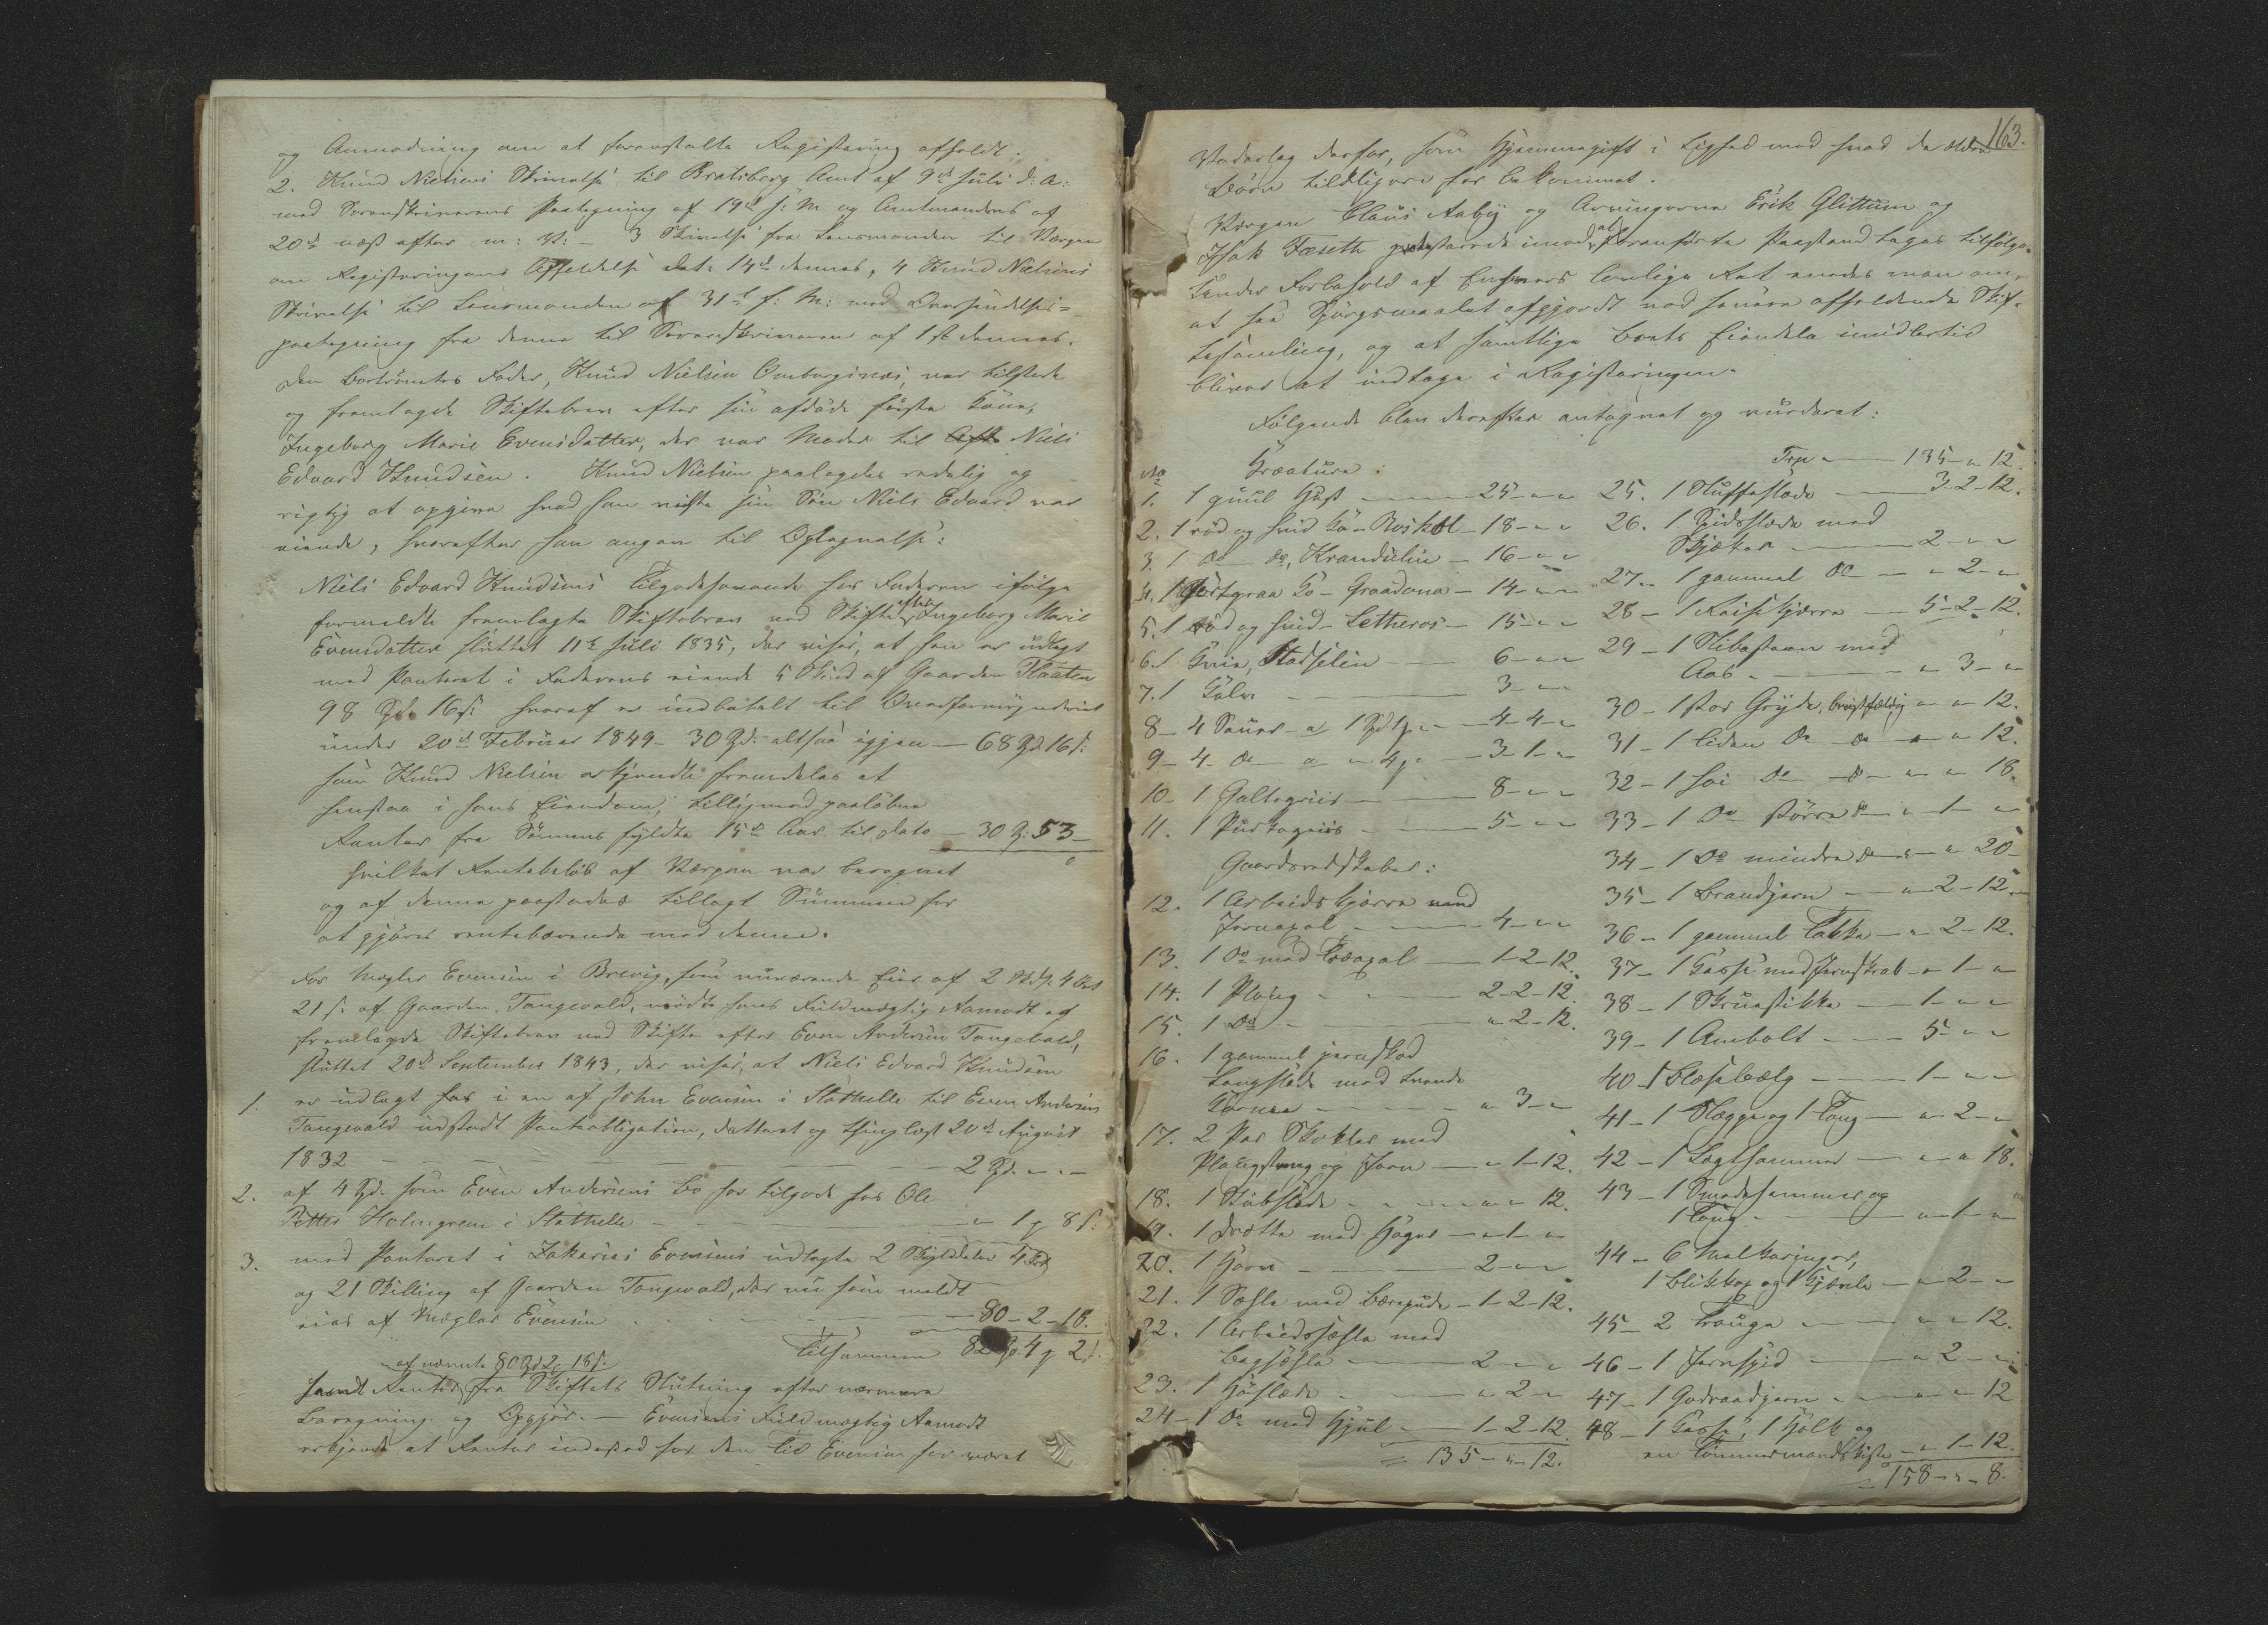 og Anmodning om at foranstalte Registering afholdt.
2. Knud Nielsens Skrivelse til Bratsberg Amt af 9de Juli d: A:
med Sorenskriverens Paategning af 19de s: M og Amtmandens af
20de næst efter m: V: – 3 Skrivelse fra Lensmanden til Værgen
om Registeringens Afholdelse dat. 14de dennes, 4 Knud Nielsens
Skrivelse til Lensmanden af 31te f: M: med Oversendelses-
paategning fra denne til Sorenskriveren af 1ste dennes.
Den bortrømtes Fader, Knud Nielsen Omborgsnæs, var tilstede
og fremlagde Skiftebrev efter sin afdøde første Kone,
Ingeborg Marie Evensdatter, der var Moder til Niels
Edvard Knudsen. Knud Nielsen paalagdes redelig og
rigtig at opgive hvad han vidste sin Søn Niels Edvard var
eiende, hvorefter han angav til Optegnelse:
Niels Edvard Knudsens Tilgodehavende hos Faderen ifølge
formeldte fremlagte Skiftebrev ved Skifte efter Ingeborg Marie
Evensdatter sluttet 11te Juli 1835, der viser, at han er udlagt
med Panteret i Faderens eiende 5 Skind af Gaarden Plaaten
98 Spd. 16 s: hvoraf er indbetalt til Overformynderiet
under 20de Februar 1849 – 30 Spd: altsaa igjen – 68 Spd 16 s:
som Knud Nielsen erkjendte fremdeles at
henstaa i hans Eiendom, tilligemed paaløbne
Renter fra Sønnens fyldte 15de Aar til Dato – 30 Sp: 53 –
hvilket Rentebeløb af Værgen var beregnet
og af denne paastodes tillagt Summen for
at gjøres rentebærende med denne.
For Mægler Evensen i Brevig, som nuværende Eier af 2 Skd. 4 Ort
21 s: af Gaarden Tangevald, mødte hans Fuldmægtig Aamodt og
fremlagde Skiftebrev ved Skifte efter Even Andersen Tangevald,
sluttet 20de September 1843, der viser, at Niels Edvard Knudsen
1. er udlagt for i en af John Evensen i Stathelle til Even Andersen
Tangevald udstedt Pantobligation, dateret og thinglæst 20de August
1832 – – – 2 Spd. " "
2. af 4 Spd. som Even Andersens Bo har tilgode hos Ole
Petter Holmgreen i Stathelle – – " 1 " 8 s.
3. med Panteret i Zakarias Evensens udlagte 2 Skylddaler 4 Ort
og 21 Skilling af Gaarden Tangevald, der nu som meldt
eies af Mægler Evensen – – 80 – 2 – 18.
Tilsammen 82 Spd. 4 " 2 s.
af nævnte 80 Spd 2 " 18 s.
samt Renter fra Skiftets Slutning efter nærmere
Beregning og Opgjør. – Evensens Fuldmægtig Aamodt
erkjendte at Renter indestod for den Tid Evensen har været
163.
Vederlag derfor, som Hjemmegift i Lighed med hvad de ældre
Børn tidligere har bekommet.
Værgen Claus Aaby og Arvingerne Erik Glittum og
Isak Tæseth protesterede imod at foranførte Paastand toges tilfølge.
Under Forbehold af Enhvers lovlige Ret enedes man om,
at faa Spørgsmaalet afgjordt ved senere afholdende Skif-
tesamling, og at samtlige Boets Eiendele imidlertid
bliver at indtage i Registeringen.
Følgende blev derefter antegnet og vurderet:
No Kreature:
1. 1 guul Hest – 25 – " "
2. 1 rød og hvid Ko – Roskol – 18 – " "
3. 1 do do, Krandulin – 16 – " "
4. 1 sortgraa Ko – Graadona – 14 – " "
5. 1 rød og hvid – Letheros – 15 – " "
6. 1 Qvie, Stadselin – 6 – " "
7. 1 Kalv – 3 – " "
8 – 4 Souer – a 1 Spd 1 " – 4 – 4 – "
9 – 4 do – a " 4 " – 3 – 1 – "
10 – 1 Galtegriis – 8 – " "
11. 1 Purkegriis – 5 – " "
Gaardsredskaber:
12. 1 Arbeidskjærre med
Jernaxel – 4 – " "
13. 1 do med Træaxel – 1 – 2 – 12.
14. 1 Ploug – 2 – 2 – 12.
15. 1 do – " 2 – 12.
16. 1 gammel jernskoed
Langslæde med tvende
– " 3 – "
17. 2 Par Skokler med
Plougstræng og Jern – " 1 – 12.
18. 1 Stubslæde – " " 12.
19. 1 Drætte med Hager – " 1 – "
20. 1 Harv – 2 – " "
21. 1 Sæhle med Bærepude – 1 – 2 – 12.
22. 1 Arbeidssæhle med
Bagsæhle – 2 – " "
23. 1 Høslæde – " 2 – "
24 – 1 do med Hjul – 1 – 2 – 12
= 135 – " – 12.
Trp " – 135 – " 12.
25. 1 Sluffeslæde – 3 – 2 – 12.
26. 1 Spidsslæde med
Skjæker – 2 – " "
27. – 1 gammel do – " 2 – "
28 – 1 Reisekjærre – 5 – 2 – 12.
29 – 1 Slibesteen med
Aas – " 3 – "
30 – 1 stor Gryde, brøstfældig " " 12.
31 – 1 liden do do " " 12.
32 – 1 høi do do " " 18.
33 – 1 do større do " 1 – "
34 – 1 do mindre do " " 20 –
35 – 1 Brandjern – " 2 – 12.
36 – 1 gammel Takke – " 2 – 12.
37 – 1 Kasse med Jernskrab – " 1 – "
38 – 1 Skruestikke – 1 – " "
39 – 1 Ambolt – 5 – " "
40 – 1 Blæsebælg – 1 – " "
41 – 1 Slægge og 1 Tang – " 2 – "
42 – 1 Lægthammer – " " 18.
43 – 1 Smedehammer og
1 Tang – " 1 – "
44 – 6 Melkeringer,
1 Blikkop og 1 Kjørele – " 2 – "
45 – 2 Trouge – " " 12.
46 – 1 Jernspid – " 2 – "
47 – 1 Godraadjern – " " 12
48 – 1 Kasse, 1 Holk og
en Tømmermandskiste – " 1 – 12.
= 158 – " – 8.